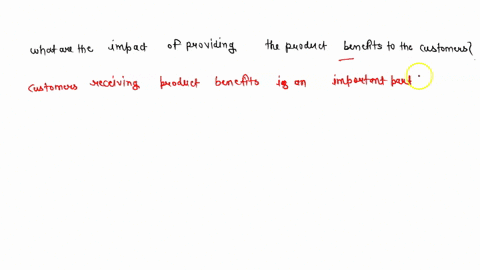 what are the impact of providing the product benefits to the customers?
customers receiving product benefits is an important part